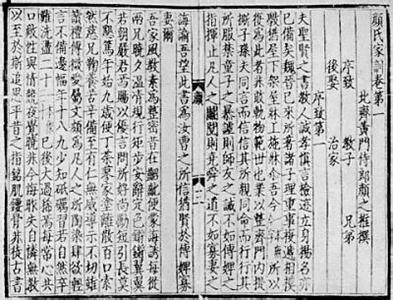 顏氏家訓卷第一
北齊黃門侍郎顏之推撰
序致 教子 兄弟
後娶 治家
序致第一
夫聖賢之書教人誠孝慎言檢迹立身揚名亦
已備矣魏晉已來所著諸子理重事複遞相模
斅猶屋下架屋牀上施牀今所以
復為此者非敢軌物範世也業以整齊門內提
撕子孫夫同言而信信其所親同命而行行其
所服禁童子之暴謔則師友之誡不如傅婢之
指揮止凡人之鬭鬩則堯舜之道不如寡妻之
誨諭吾望此書為汝曹之所信猶賢於傅婢寡
妻爾
吾家風教素為整密昔在齠齔便蒙誨誘每從
兩兄曉夕溫凊規行矩步安辭定色鏘鏘翼翼
若朝嚴君焉賜以優言問所好尚勵短引長莫
不懇篤年始九歲便丁荼蓼家塗離散百口索
然慈兄鞠養苦辛備至有仁無威導示不切雖
讀禮傳微愛屬文頗為凡人之所陶染肆欲輕
言不備邊幅年十八九少知砥礪習若自然卒
難洗盪二十已後大過稀焉每常心共
口敵性與情競夜覺曉非今悔昨失自憐無教
以至於斯追思平昔之指銘肌鏤骨非徒古書